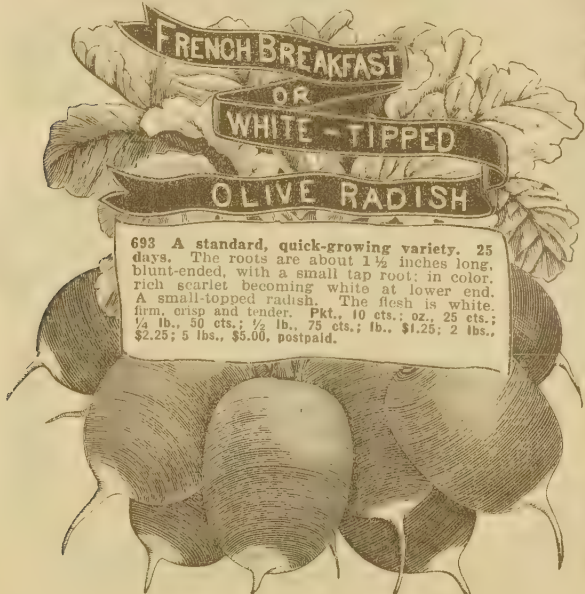 FRENCH BREAKFAST
OR
WHITE-TIPPED
OLIVE RADISH
693 A standard, quick-growing variety. 25
days. The roots are about 1½ inches long,
blunt-ended, with a small tap root; in color,
rich scarlet becoming white at lower end.
A small-topped radish. The flesh is white,
firm, crisp and tender. Pkt., 10 cts.; oz., 25 cts.;
¼ lb., 50 cts.; ½ lb., 75 cts.; lb., $1.25; 2 lbs.,
$2.25; 5 lbs., $5.00, postpaid.